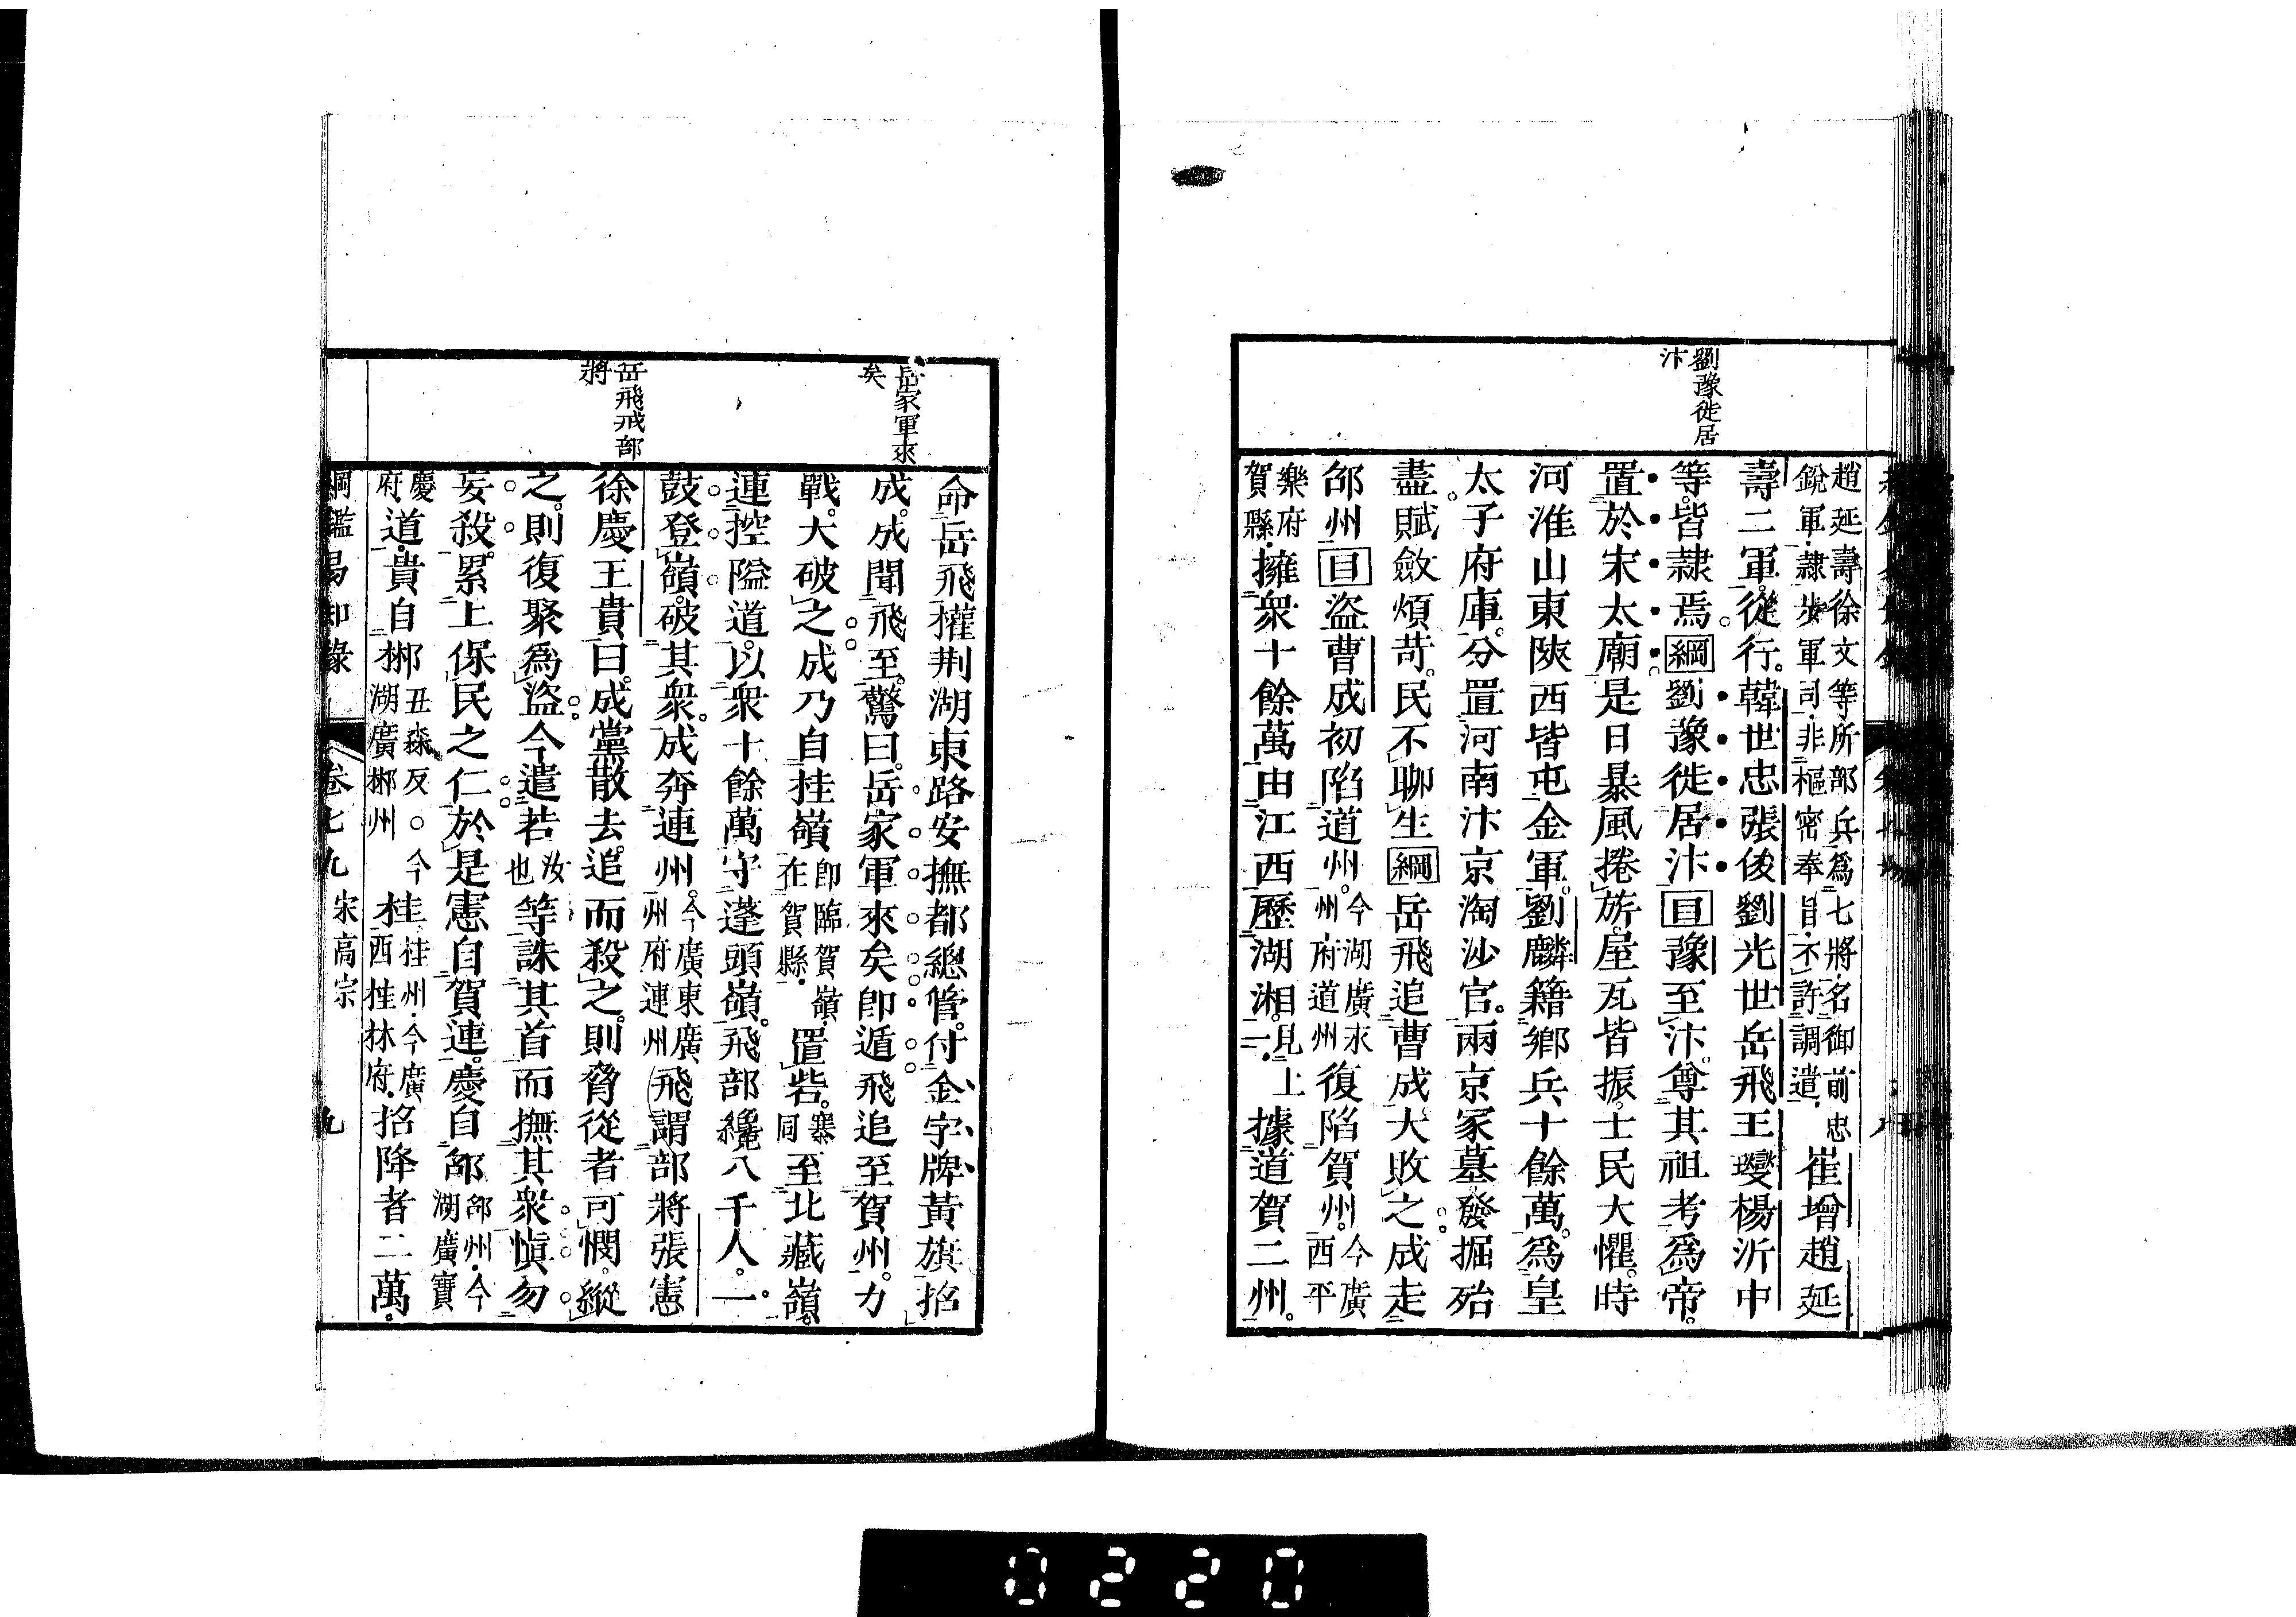 劉豫徙居
汴
趙延壽徐文等所部兵爲七將名御前忠
銳軍隸步軍司非樞密奉旨不許調遣
崔增趙延
壽二軍從行韓世忠張俊劉光世岳飛王𤫉楊沂中
等皆隷焉綱劉豫徙居汴目豫至汴尊其祖考爲帝
置於宋太廟是日暴風捲旂屋瓦皆振士民大懼時
河淮山東陝西皆屯金軍劉麟籍鄉兵十餘萬爲皇
太子府庫分置河南汴京淘沙官兩京冢墓發掘殆
盡賦斂煩苛民不聊生綱岳飛追曹成大敗之成走
邵州目盜曹成初陷道州今湖廣永州府道州復陷賀州今廣西平
樂府賀縣擁衆十餘萬由江西歷湖湘見上二據道賀二州
岳家軍來
矣
岳飛戒部
將
命岳飛權荆湖東路安撫都總管付金字牌黃旗招
成成聞飛至驚曰岳家軍來矣卽遁飛追至賀州力
戰大破之成乃自挂嶺卽臨賀嶺在賀縣置砦寨同至北藏嶺
連控隘道以衆十餘萬守蓬頭嶺飛部纔八千人一
鼓登嶺破其衆成奔連州今廣東廣州府連州飛謂部將張憲
徐慶王貴曰成黨散去追而殺之則脅從者可憫縱
之則復聚爲盜今遣若汝也等誅其首而撫其衆愼勿
妄殺累上保民之仁於是憲自賀連慶自邵邵州今湖廣寶
慶府道貴自郴丑森反○今湖廣郴州桂桂州今廣西桂林府招降者二萬
綱鑑易知錄 卷七九 宋高宗 九
0220